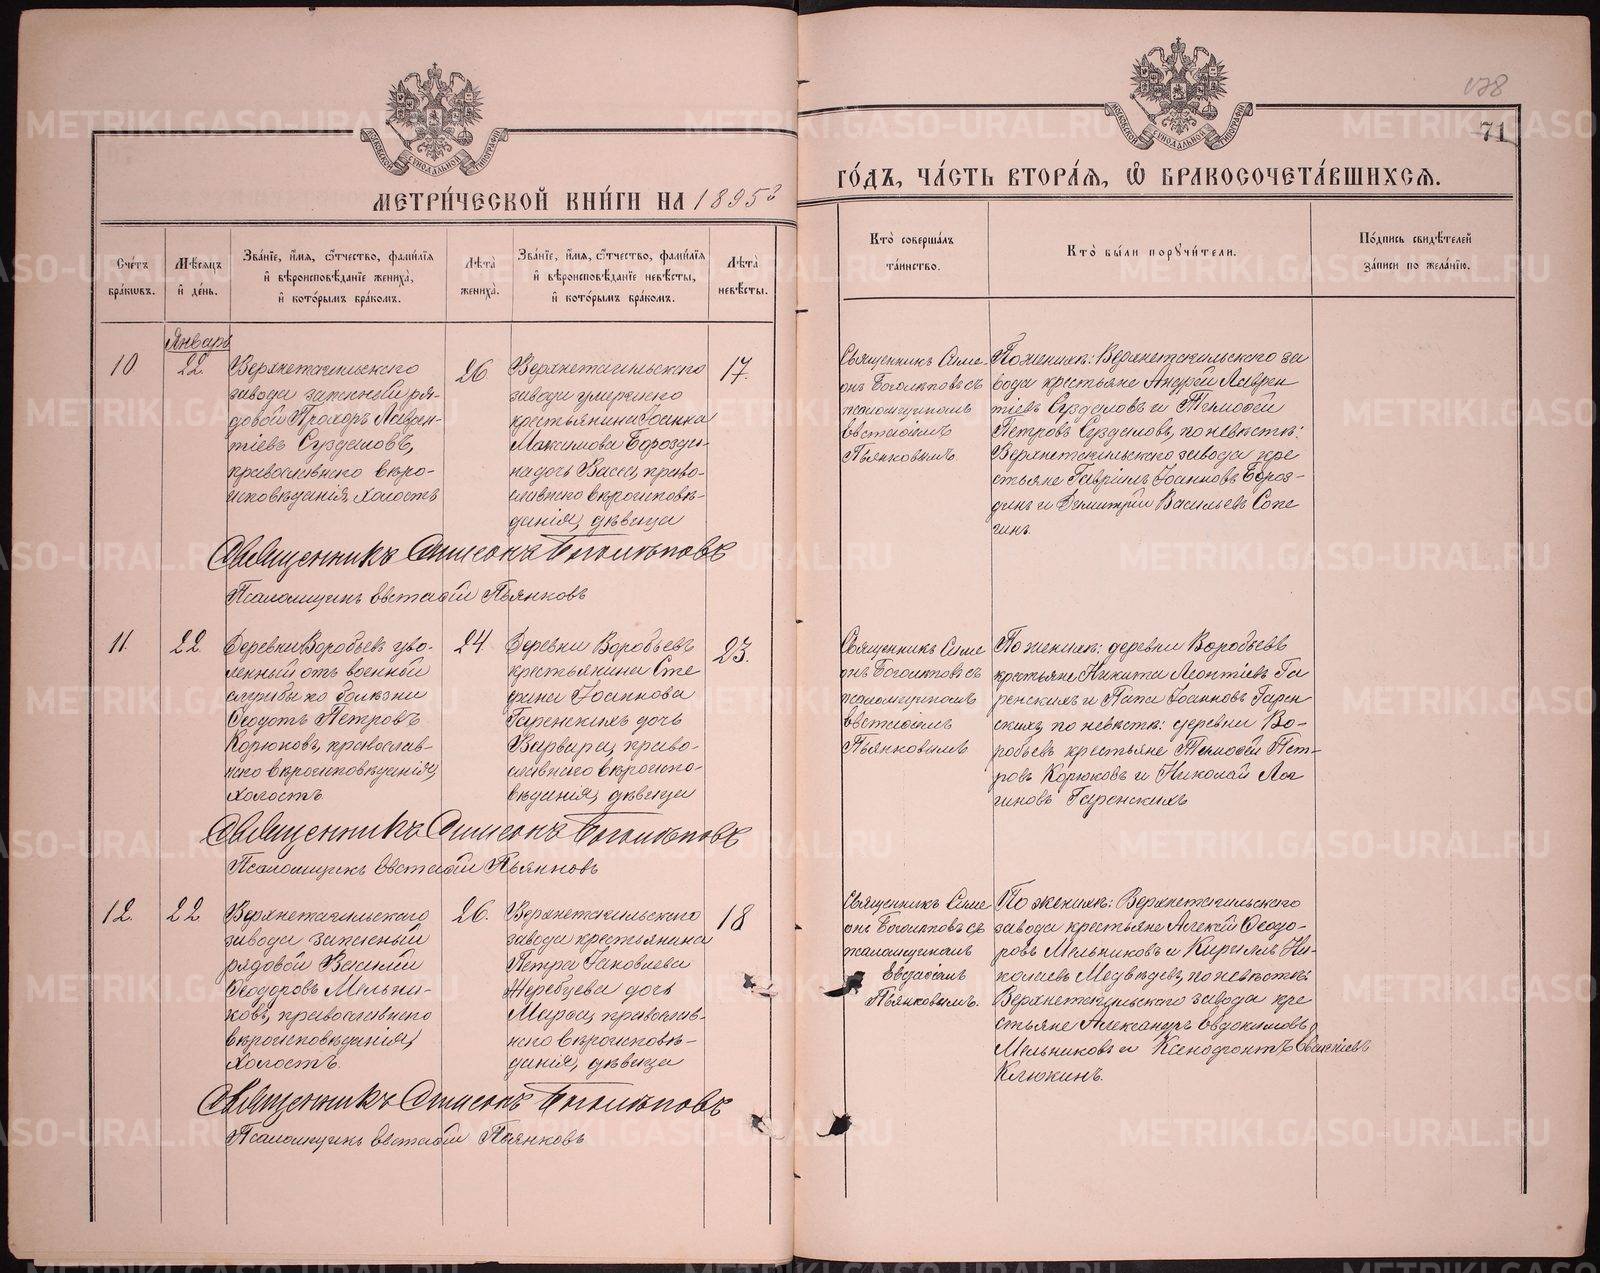 178
71
МЕТРИ́ЧЕСКОЙ КНИ́ГИ НА 1895й
ГО́ДЪ, ЧА́СТЬ ВТОРА́Я, Ѡ БРАКОСОЧЕТА́ВШИХСЯ.
Сче́тъ бра́ковъ.
Мѣ́сяцъ и де́нь.
Зва́нїе, и́мя, ѻ҆́тчество, фами́лїя
и вѣроисповѣ́данїе жениха̀,
и кото́рымъ бра́комъ.
Лѣ́та жениха̀.
Зва́нїе, и́мя, ѻ҆́тчество, фами́лїя
и вѣроисповѣ́данїе невѣ́сты,
и кото́рымъ бра́комъ.
Лѣ́та невѣ́сты.
Кто̀ соверша́лъ
та́инство.
Кто̀ бы́ли порꙋчи́тели.
По́дпись свидѣ́телей
за́писи по жела́нїю.
Январь
10
22
Верхнетагильскаго
завода запасный ря-
довой Прохоръ Лаврен-
тіевъ Суздаловъ,
православнаго вѣро-
исповѣданія, холостъ
26
Верхнетагильскаго
завода умершаго
крестьянина Іоанна
Максимова Борозди-
на дочь Васса, право-
славнаго вѣроисповѣ-
данія, дѣвица
17.
Священникъ Симе-
онъ Боголѣповъ съ
псаломщикомъ
Евстаѳіемъ
Пьянковымъ
По женихѣ: Верхнетагильскаго за
вода крестьяне Андрей Лаврен
тіевъ Суздаловъ и Тимоѳей
Петровъ Суздаловъ, по невѣстѣ:
Верхнетагильскаго завода кре
стьяне Гавріилъ Іоанновъ Бороз-
динъ и Димитрій Васильевъ Сопе
гинъ.
Священникъ Симеонъ Боголѣповъ
Псаломщикъ Евстаѳій Пьянковъ
11.
22.
Деревни Воробьевъ уво-
ленный отъ военной
службы по болѣзни
Ѳеодотъ Петровъ
Корюковъ, православ-
наго вѣроисповѣданія,
холостъ
24.
Деревни Воробьевъ
крестьянина Сте
фана Іоаннова
Гаренскихъ дочь
Варвара, право-
славнаго вѣроиспо-
вѣданія, дѣвица
23.
Священникъ Симе
онъ Боголѣповъ съ
псаломщикомъ
Евстаѳіемъ
Пьянковымъ
По женихѣ: деревни Воробьевъ
крестьяне Никита Леонтіевъ Га
ренскихъ и Іоанновъ Гарен
скихъ, по невѣстѣ: деревни Во-
робьевъ крестьяне Тимоѳей Пет-
ровъ Корюковъ и Николай Лог
гиновъ Гаренскихъ
Священникъ Симеонъ Боголѣповъ
Псаломщикъ Евстаѳій Пьянковъ
12.
22
Верхнетагильскаго
завода запасный
рядовой Василій
Ѳеодоровъ Мельни-
ковъ, православнаго
вѣроисповѣданія,
холостъ.
26.
Верхнетагильскаго
завода крестьянина
Петра Іаковлева
Жеребцева дочь
Марѳа, православ-
наго вѣроисповѣ-
данія, дѣвица
18
Священникъ Симе
онъ Боголѣповъ съ
псаломщикомъ
Евстаѳіемъ
Пьянковымъ.
По женихѣ: Верхнетагильскаго
завода крестьяне Алексѣй Ѳеодо-
ровъ Мельниковъ и Кириллъ Ни-
колаевъ Медвѣдевъ, по невѣстѣ:
Верхнетагильскаго завода кре
стьяне Александръ Евдокимовъ
Мельниковъ и Ксенофонтъ
Клюкинъ.
Священникъ Симеонъ Боголѣповъ
Псаломщикъ Евстаѳій Пьянковъ
METRIKI.GASO-URAL.RU